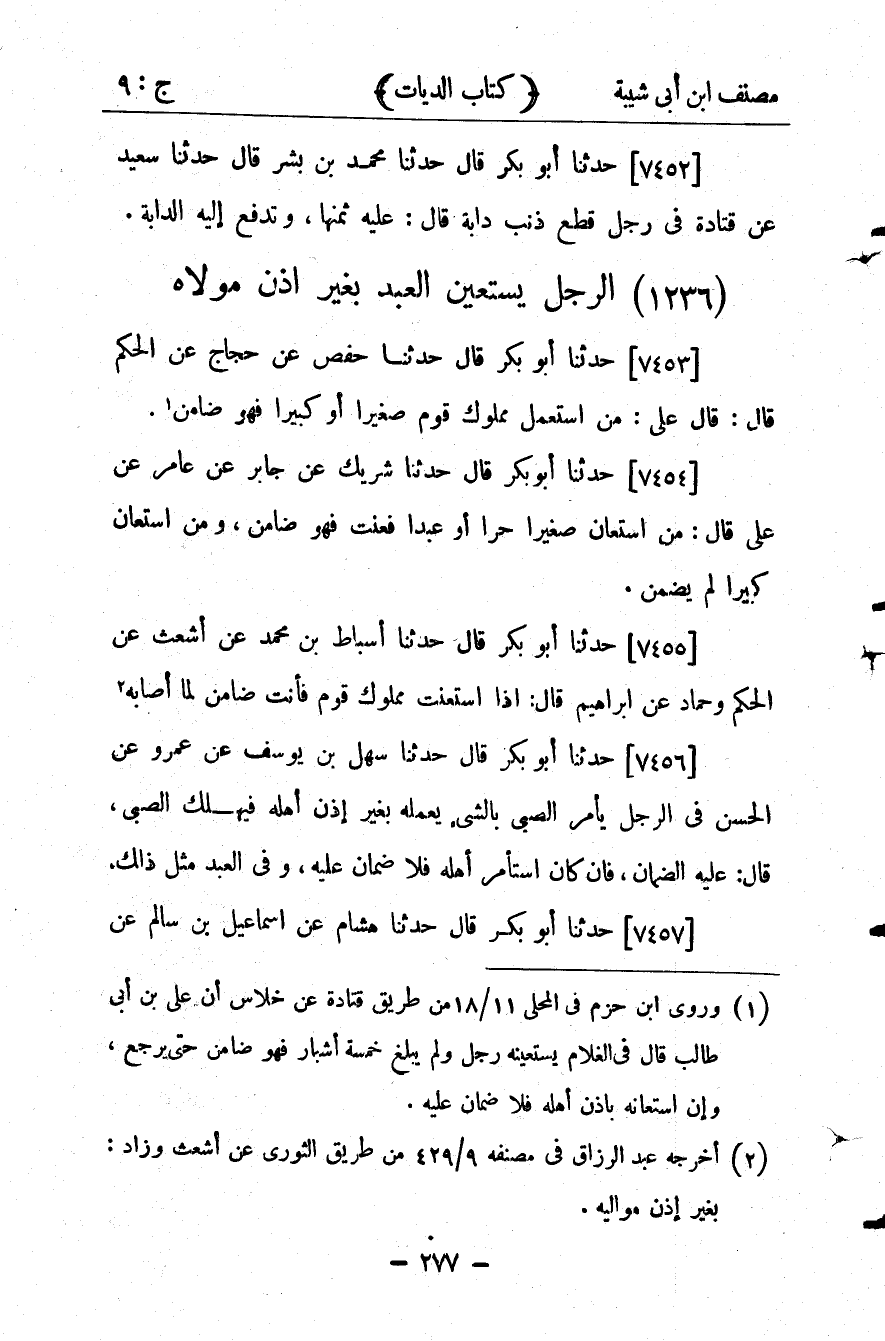 مصنف ابن أبى شيبة ﴿ كتاب الديات ﴾ ج : ٩
[٧٤٥٢] حدثنا أبو بكر قال حدثنا محمد بن بشر قال حدثنا سعيد
عن قتادة فى رجل قطع ذنب دابة قال : عليه ثمنها ، و تدفع إليه الدابة .
(١٢٣٦) الرجل يستعين العبد بغير اذن مولاه
[٧٤٥٣] حدثنا أبو بكر قال حدثنا حفص عن حجاج عن الحكم
قال : قال على : من استعمل مملوك قوم صغيرا أو كبيرا فهو ضامن١ .
[٧٤٥٤] حدثنا أبوبكر قال حدثنا شريك عن جابر عن عامر عن
على قال : من استعان صغيرا حرا أو عبدا فعنت فهو ضامن ، و من استعان
كبيرا لم يضمن .
[٧٤٥٥] حدثنا أبو بكر قال حدثنا أسباط بن محمد عن أشعث عن
الحكم وحماد عن ابراهيم قال: اذا استعنت مملوك قوم فأنت ضامن لما أصابه٢
[٧٤٥٦] حدثنا أبو بكر قال حدثنا سهل بن يوسف عن عمرو عن
الحسن فى الرجل يأمر الصبى بالشىء يعمله بغير إذن أهله فيهلك الصبى ،
قال: عليه الضمان ، فان كان استأمر أهله فلا ضمان عليه ، و فى العبد مثل ذالك.
[٧٤٥٧] حدثنا أبو بكر قال حدثنا هشام عن اسماعيل بن سالم عن
(١) وروى ابن حزم فى المحلى ١٨/١١من طريق قتادة عن خلاس أن على بن أبى
طالب قال فى الغلام يستعينه رجل ولم يبلغ خمسة أشبار فهو ضامن حتى يرجع ،
وإن استعانه باذن أهله فلا ضمان عليه .
(٢) أخرجه عبد الرزاق فى مصنفه ٤٢٩/٩ من طريق الثورى عن أشعث وزاد :
بغير إذن مواليه .
- ٢٧٧ -